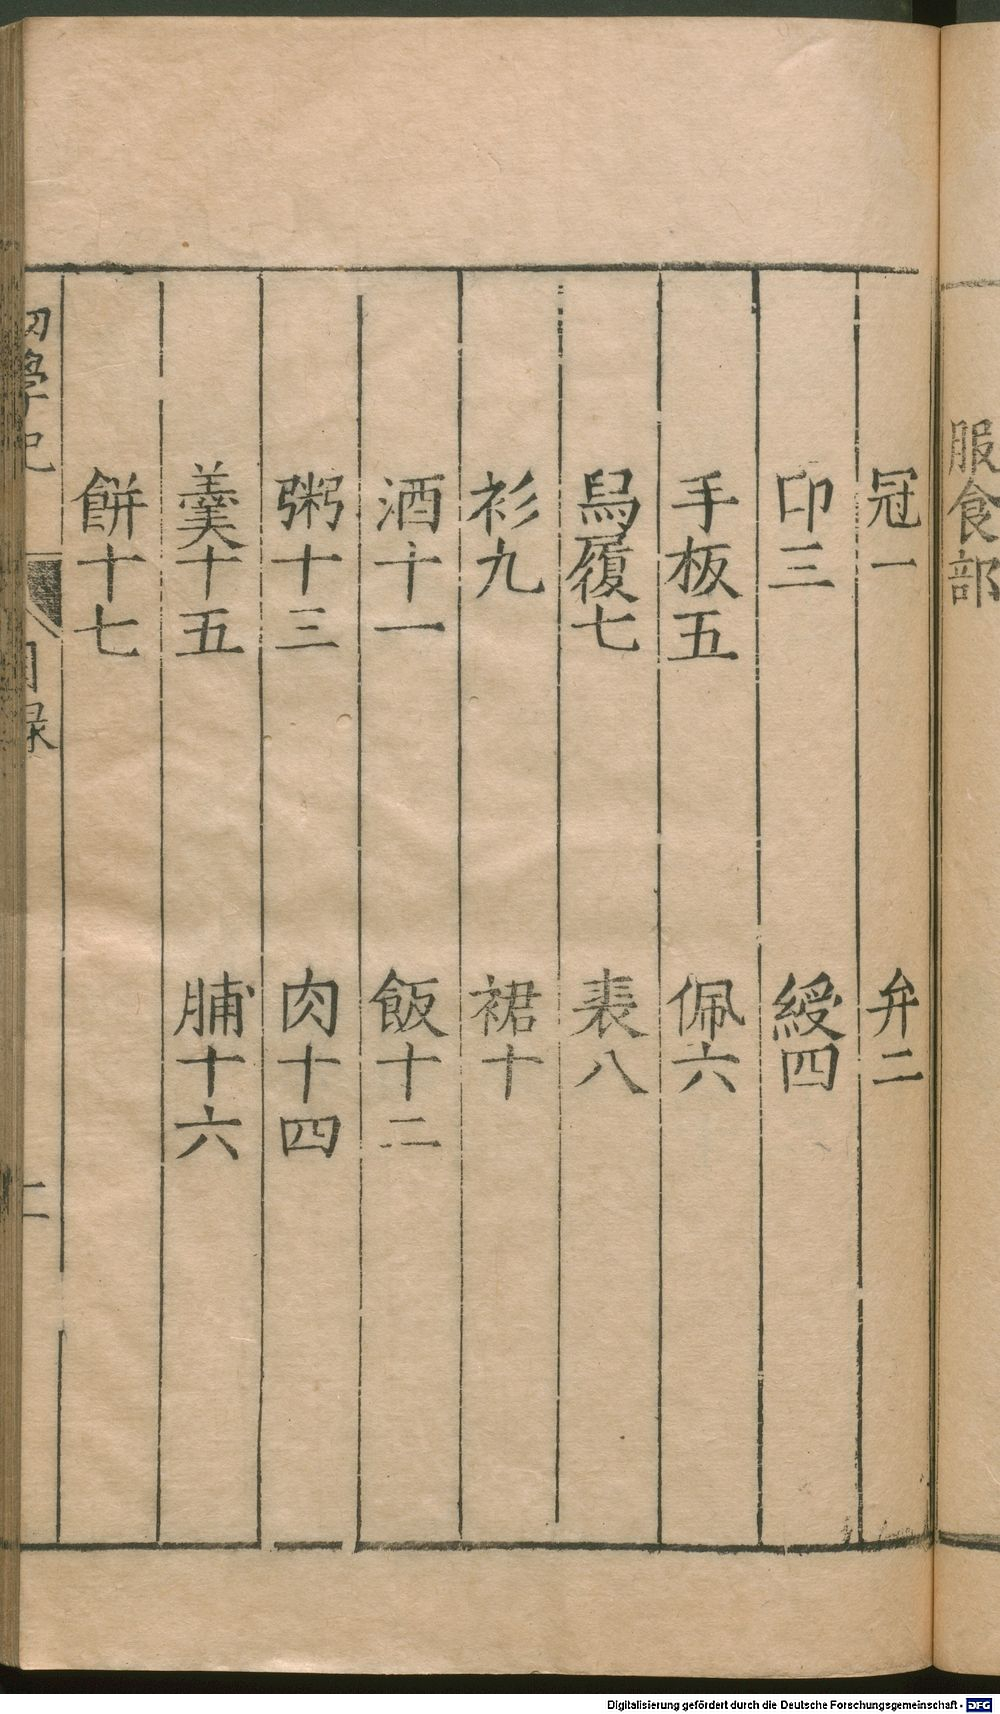 服食部
冠一 弁二
印三 綬四
手板五 佩六
舄履七 裘八
衫九 裙十
酒十一 飯十二
粥十三 肉十四
羹十五 脯十六
餅十七
初學記 目録 二
Digitalisierung gefördert durch die Deutsche Forschungsgemeinschaft - DFG